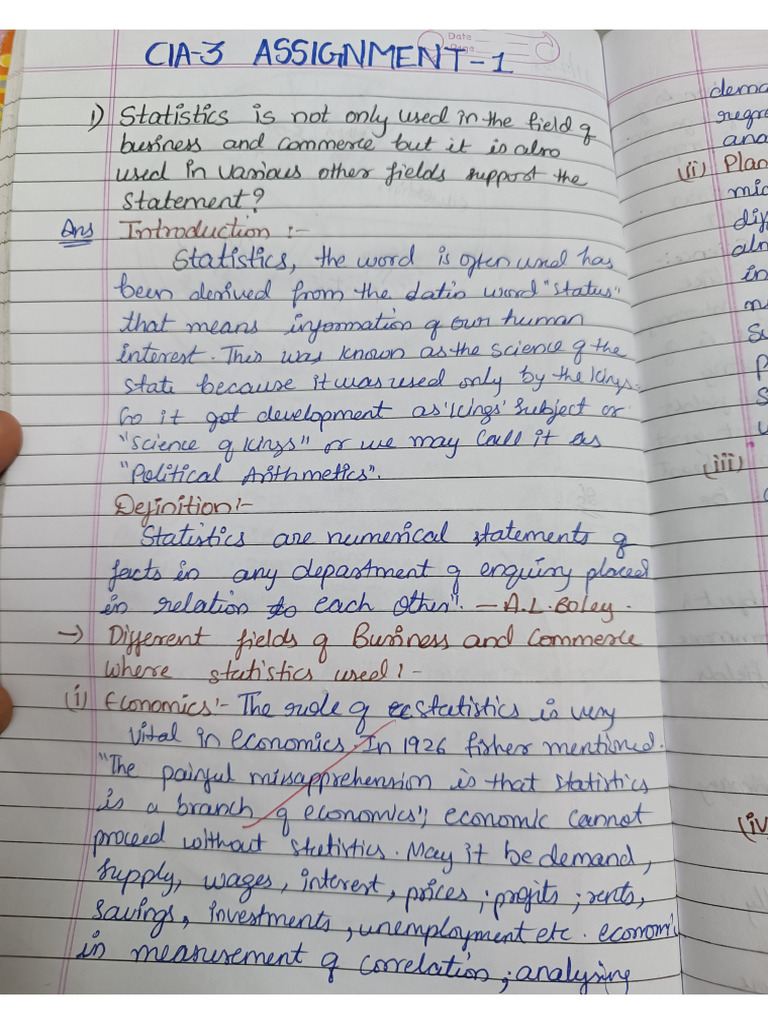 Date
Page
CIA-3 ASSIGNMENT-1
i) Statistics is not only used in the field of
business and commerce but it is also
used in various other fields support the
statement?
Ans Introduction :-
Statistics, the word is often used has
been derived from the latin word "status"
that means information of our human
interest. This was known as the science of the
state because it was used only by the kings.
So it got development as 'kings' subject or
"science of kings" or we may call it as
"Political Arithmetics".
Definition :-
Statistics are numerical statements of
facts in any department of enquiry placed
in relation to each other". - A.L. Boley.
→ Different fields of Business and Commerce
where statistics used :-
(i) Economics :- The role of statistics is very
vital in economics. In 1926 fisher mentioned.
"The painful missapprehension is that statistics
is a branch of economics"; economic cannot
proceed without statistics. May it be demand,
supply, wages, interest, prices ; profits ; rents,
savings, investments, unemployment etc. economi
in measurement of correlation ; analysing
dema
regre
ana
(ii) Plan
mic
dif
alm
in
(iii)
(iv